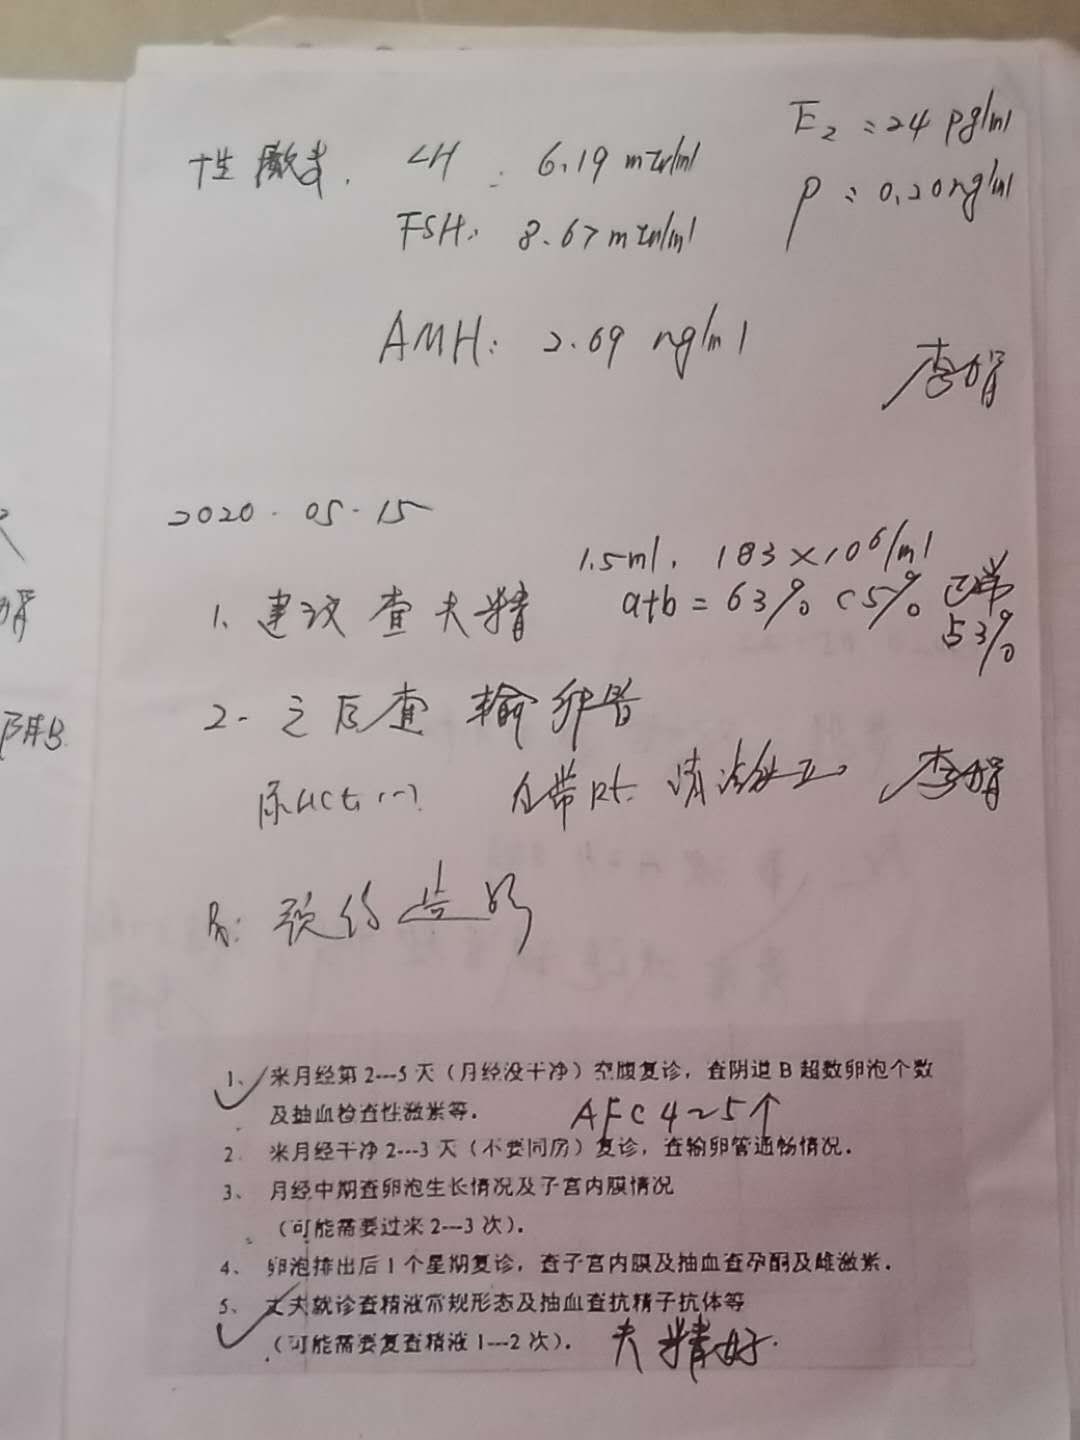 性激素. LH : 6.19 mIu/ml E₂ : 24 pg/ml
FSH: 8.67 mIu/ml P : 0.20 ng/ml
AMH: 2.69 ng/ml
李娟
2020.05.15
1.5ml. 183×10⁶/ml
1. 建议查夫精 a+b=63% c5% 正常
53%
2. 之后查输卵管
尿HCG(-) 自带Pt. 李娟
预约造影
1、来月经第2---5天（月经没干净）空腹复诊，查阴道B超数卵泡个数
及抽血检查性激素等. AFC 4~5个
2. 来月经干净2---3天（不要同房）复诊，查输卵管通畅情况.
3、月经中期查卵泡生长情况及子宫内膜情况
（可能需要过来2---3次）.
4、卵泡排出后1个星期复诊，查子宫内膜及抽血查孕酮及雌激素.
5、丈夫就诊查精液常规形态及抽血查抗精子抗体等
（可能需要复查精液1---2次）. 夫精好.